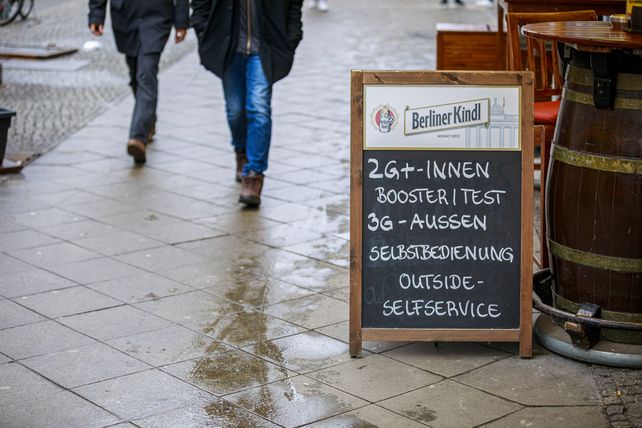 Berliner Kindl
ANNO 1872
2G+-INNEN
BOOSTER/TEST
3G-AUSSEN
SELBSTBEDIENUNG
OUTSIDE-
SELFSERVICE